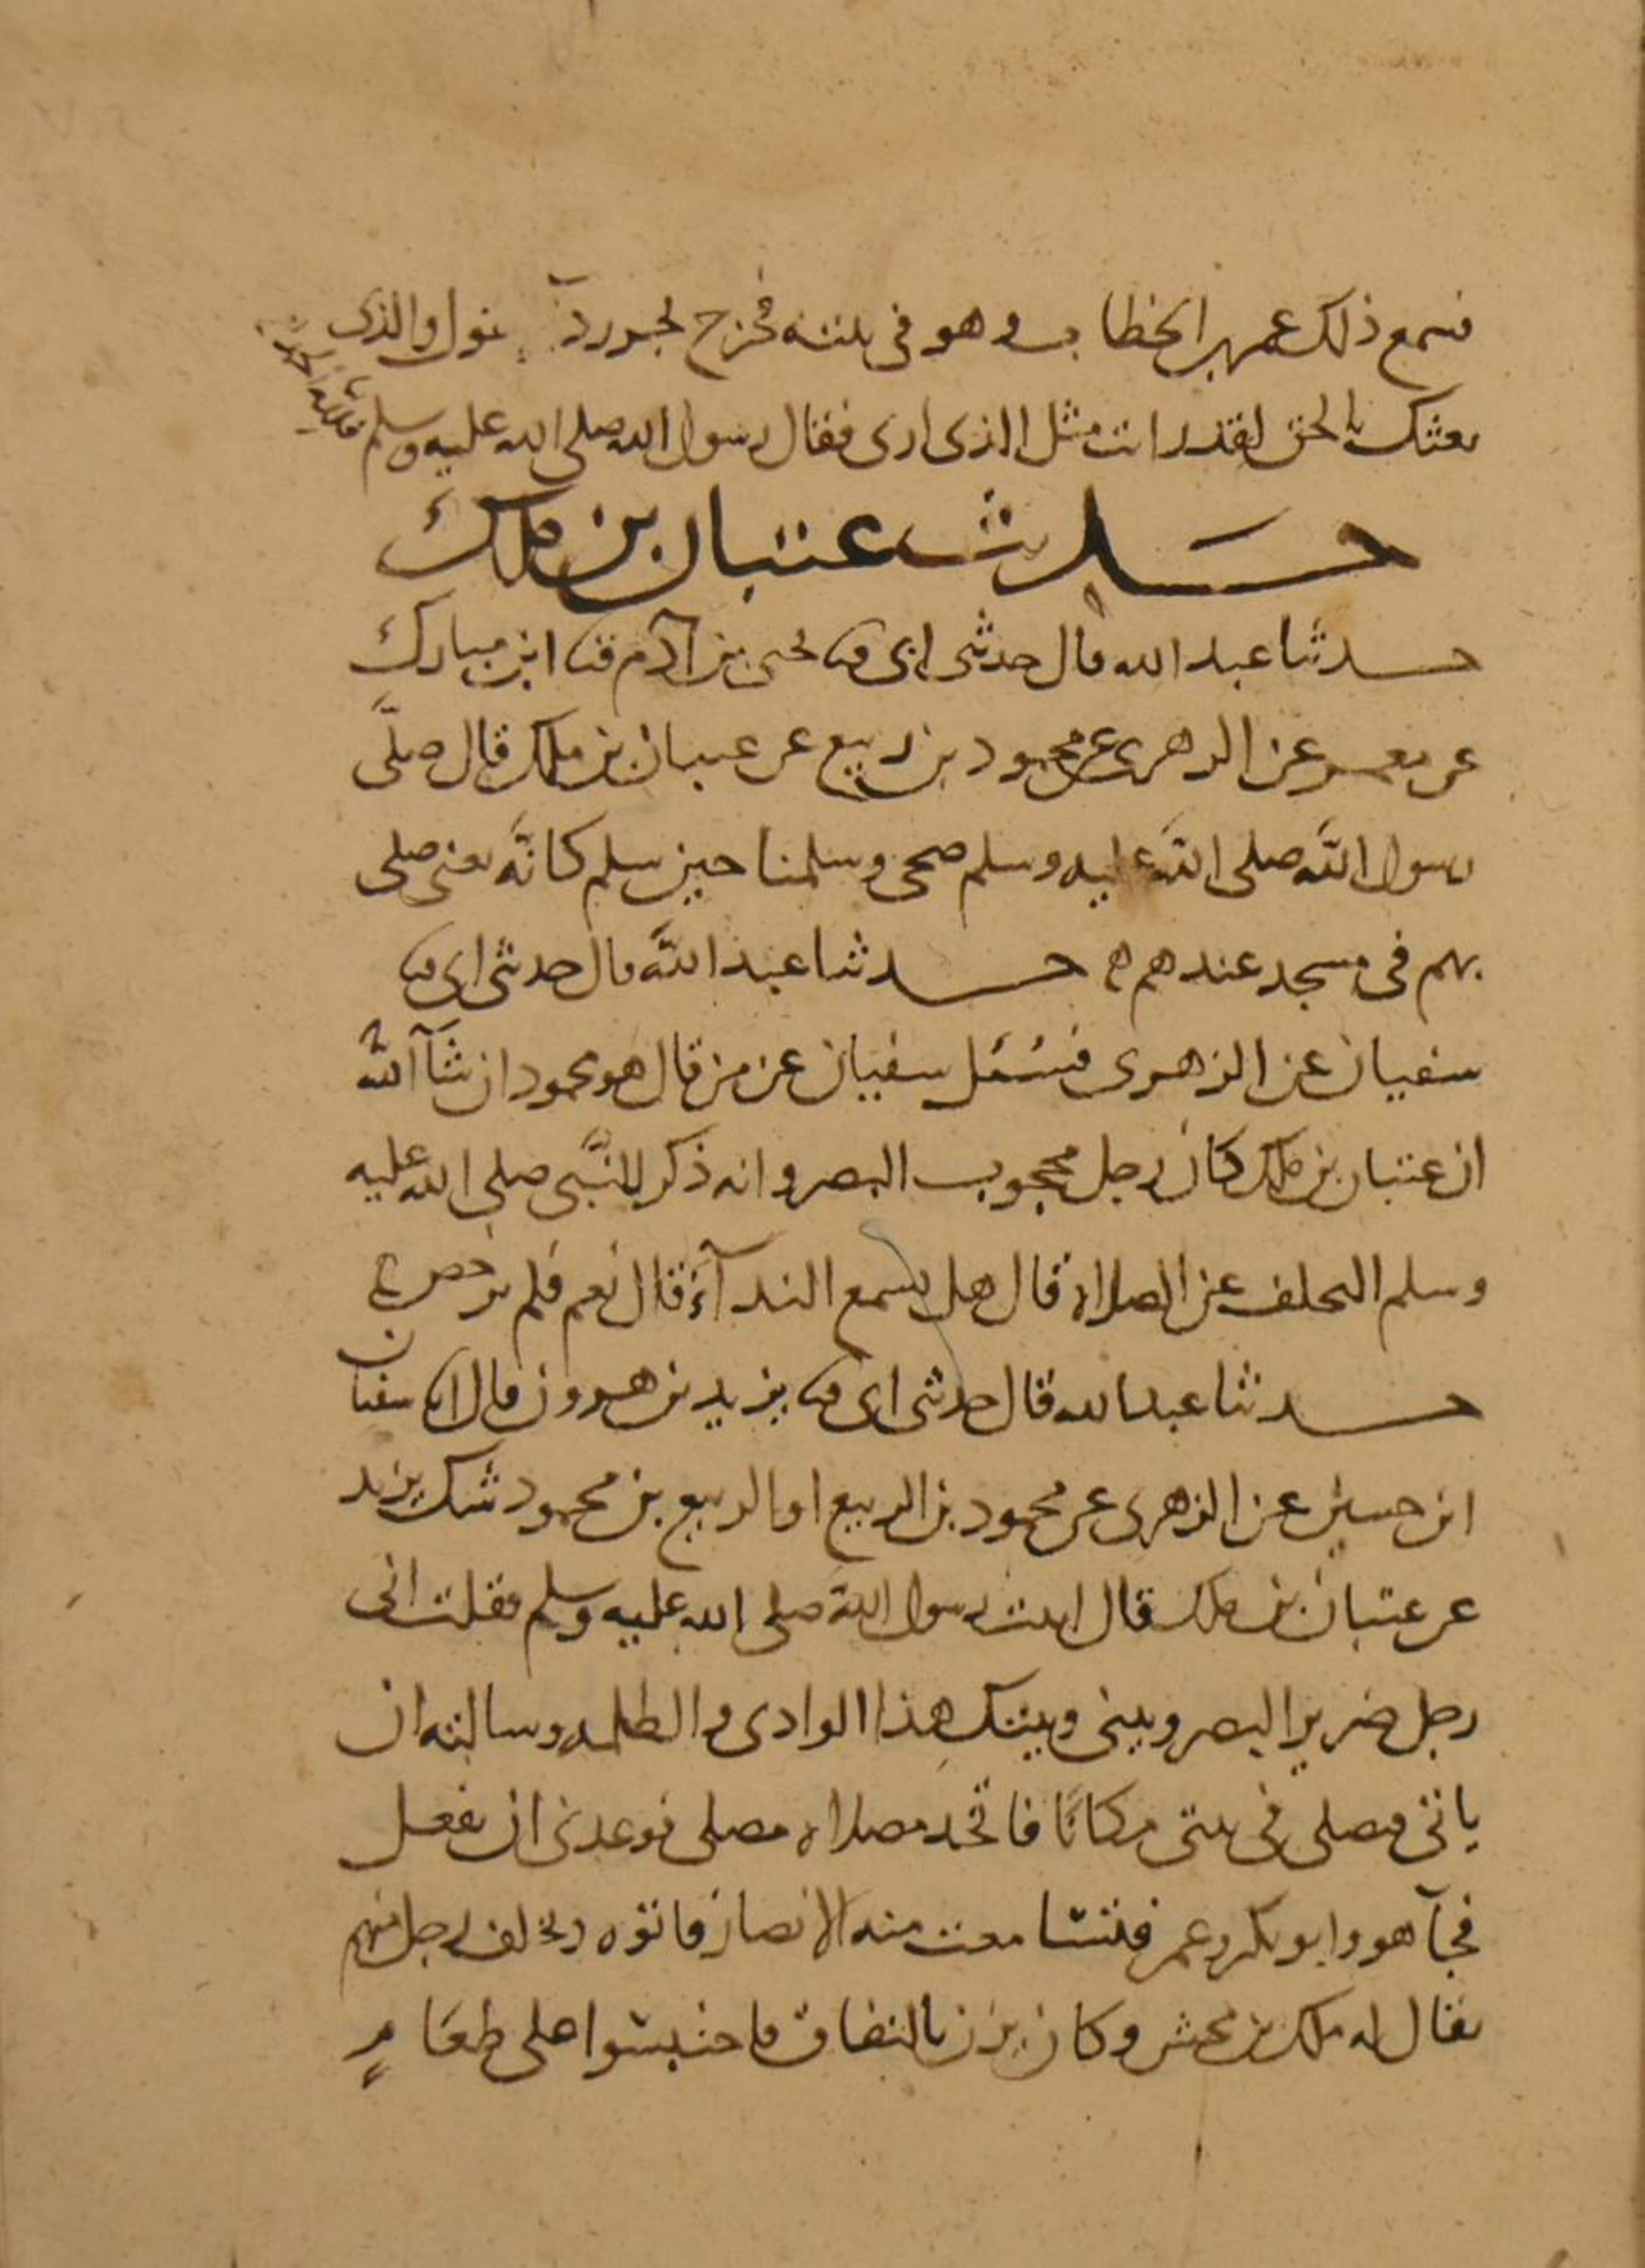 فسمع ذلك عمر بن الخطاب وهو في بيته فخرج يجر رداءه يقول والذي
بعثك بالحق لقد رايت مثل الذي ارى فقال رسول الله صلى الله عليه وسلم فلله الحمد
حديث عتبان بن ملك
حدثنا عبد الله قال حدثني ابي ثنا يحيى بن آدم ثنا ابن مبارك
عن معمر عن الزهري عن محمود بن ربيع عن عتبان بن ملك قال صلّى
رسول اللّه صلى اللّه عليه وسلم ضحى وسلمنا حين سلم كانّه يعني صلى
بهم في مسجد عندهم ه حدثنا عبد اللّه قال حدثني ابي ثنا
سفيان عن الزهري فسُئل سفيان عن من قال هو محمود ان شآ اللّه
ان عتبان بن ملك كان رجل محجوب البصر وانه ذكر للنّبي صلى الله عليه
وسلم التخلف عن الصلاة قال هل تسمع الندآء قال نعم فلم يرخص له
حدثنا عبد الله قال حدثني ابي ثنا يزيد بن هرون قال انا سفيان
ابن حسين عن الزهري عن محمود بن الربيع او الربيع بن محمود شك يزيد
عن عتبان بن ملك قال اتيت رسول الله صلى الله عليه وسلم فقلت اني
رجل ضرير البصر وبيني وبينك هذا الوادي والظلمه وسالته ان
ياتي فيصلي في بيتي مكانًا فاتخذ مصلاه مصلى فوعدني ان يفعل
فجآ هو وابو بكر وعمر فتسامعت منه الانصار فاتوه وتخلف رجل منهم
يقال له ملك بن محش وكان يزن بالنفاق فاحتبسوا على طعامٍ